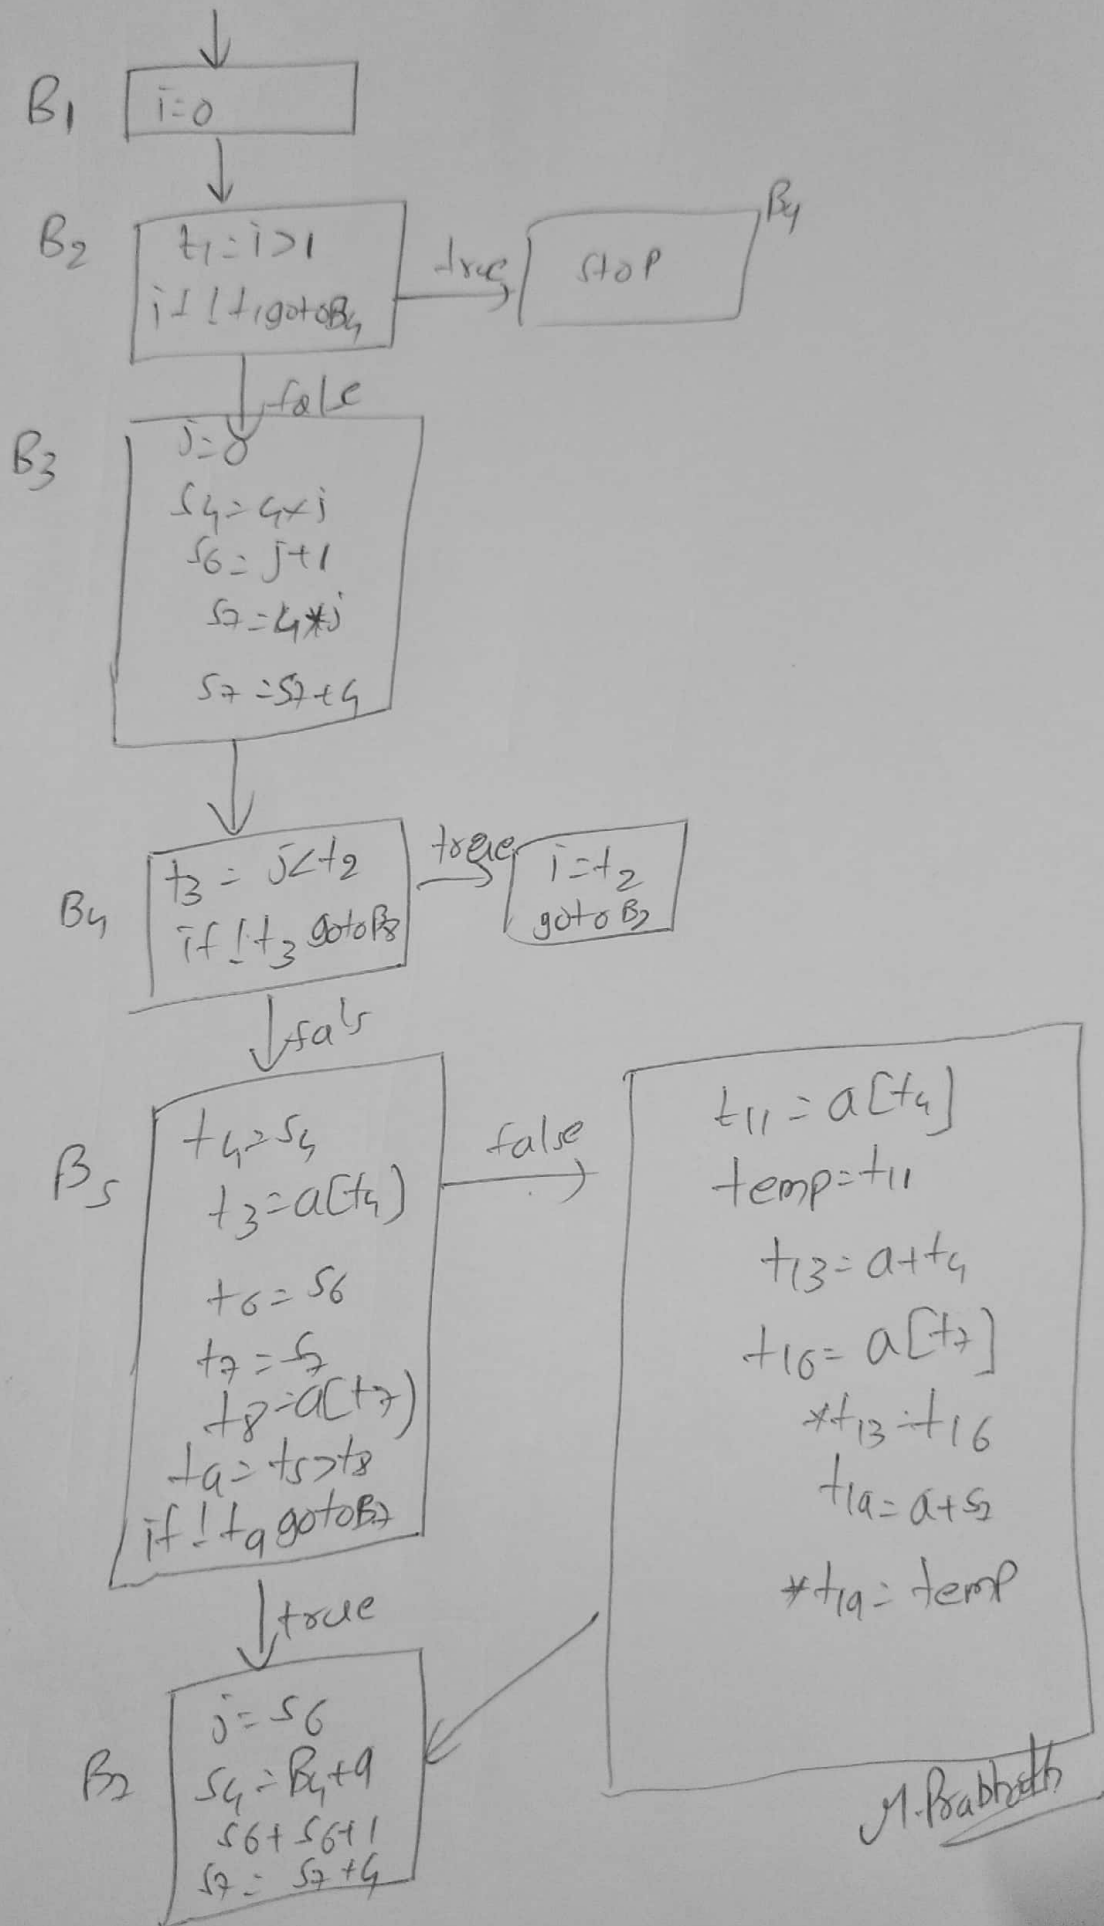 B1
i=0
B2
t1=i>1
if !t1 goto B4
true
stop
B4
false
B3
j=0
s4=4×j
s6=j+1
s7=4*j
s7=s7+4
B4
t3=j<t2
if !t3 goto B8
true
i=t2
goto B2
fals
B5
t4=s4
t3=a[t4)
t6=s6
t7=s7
t8=a[t7)
t9=t5>t8
if !t9 goto B7
false
t11=a[t4]
temp=t11
t13=a+t4
t16=a[t7]
*t13=t16
t19=a+s7
*t19=temp
true
B7
j=s6
s4=B4+9
s6+s6+1
s7=s7+4
M.Prabhath